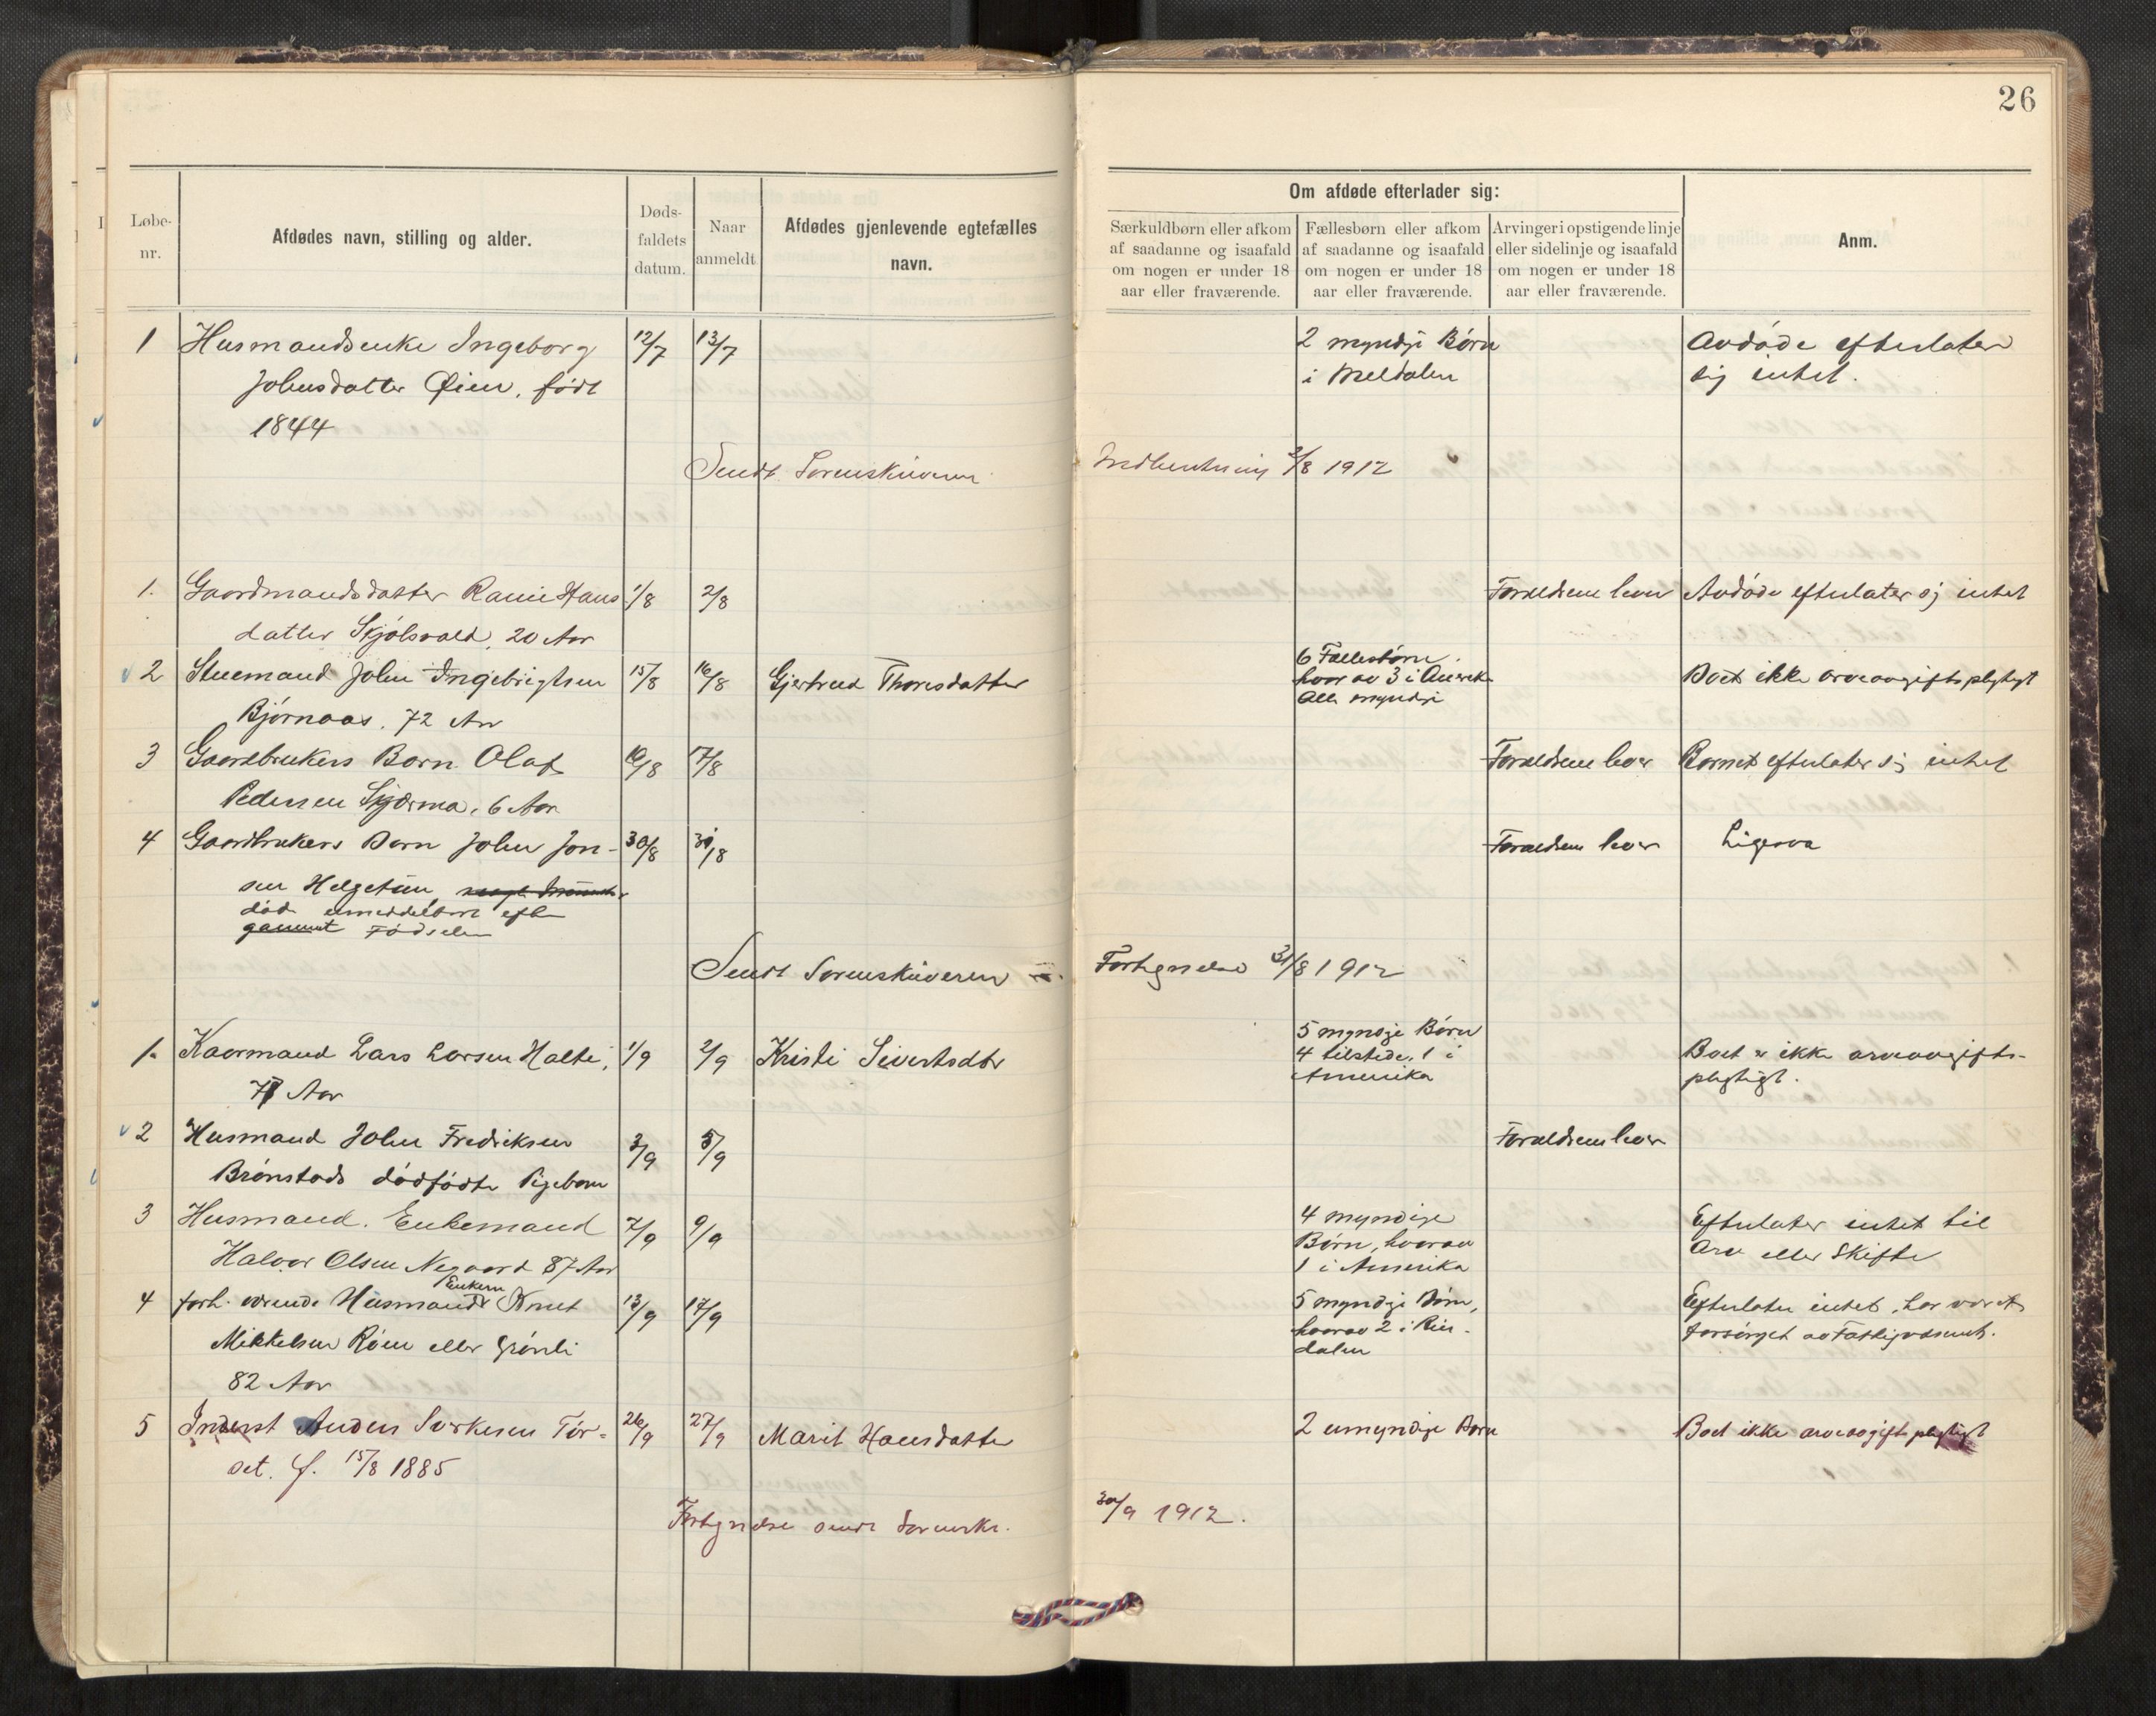 26
Løbe-
nr.
Afdødes navn, stilling og alder.
Døds-
faldets
datum.
Naar
anmeldt
Afdødes gjenlevende egtefælles
navn.
Om afdøde efterlader sig:
Særkuldbørn eller afkom
af saadanne og isaafald
om nogen er under 18
aar eller fraværende.
Fællesbørn eller afkom
af saadanne og isaafald
om nogen er under 18
aar eller fraværende.
Arvinger i opstigende linje
eller sidelinje og isaafald
om nogen er under 18
aar eller fraværende.
Anm.
1 Husmandsenke Ingeborg 12/7 13/7 2 myndji Børn Avdøde efterlater
Johnsdatter Øien, født i Meldalen sig intet.
1844
Sendt Sorenskriveren Indberetning 2/8 1912
1. Gaardmandsdatter Hans 1/8 2/8 Forældrene lever Avdøde efterlater sig intet
datter Skjølsvold, 20 Aar
2 Stuemand John Ingebrigtsen 15/8 16/8 Gjertrud Thoresdatter 6 Fællesbørn
hvorav 3 i Amerika Boet ikke arveavgiftspligtigt
Bjørnaas, 72 Aar Alle myndji
3 Gaardbrukers Barn Olaf 16/8 17/8 Forældrene lever Barnet efterlater sig intet
Pedersen Skjærma, 6 Aar
4 Gaardbrukers Barn John Jon- 30/8 30/8 Forældrene lever Ligesaa
sen Helgetun,
død umiddelbart efter
gammel Fødselen
Sendt Sorenskriveren Fortegnelse 31/8 1912
1. Kaarmand Lars Larsen Halte, 1/9 2/9 Kristi Sivertsdtr 5 myndje Børn
4 tilstede, 1 i Boet er ikke arveavgifts-
Aar Amerika pligtigt.
2 Husmand John Fredriksen 3/9 5/9 Forældrene lever
Brønstads dødfødte Pigebarn
3 Husmand. Enkemand 7/9 9/9 4 myndige Efterlater intet til
Halvor Olsen Negaard 87 Aar Børn, hvorav
1 i Amerika Arv eller Skifte
4 forh. værende Husmand Enkem Knut 13/9 17/9 5 myndje Børn, Efterlater intet, har været
Mikkelsen Røen eller Grønli hvorav 2 i Rin-
dalen forsørget av Fattigvæsenet.
82 Aar
5 Inderst Anders Sivertsen Tør- 26/9 27/9 Marit Hansdatter 2 umyndige Barn Boet ikke arveavgiftspligtigt
set. f. 15/8 1885
Fortegnelse sendt Sorenskr. 30/9 1912.